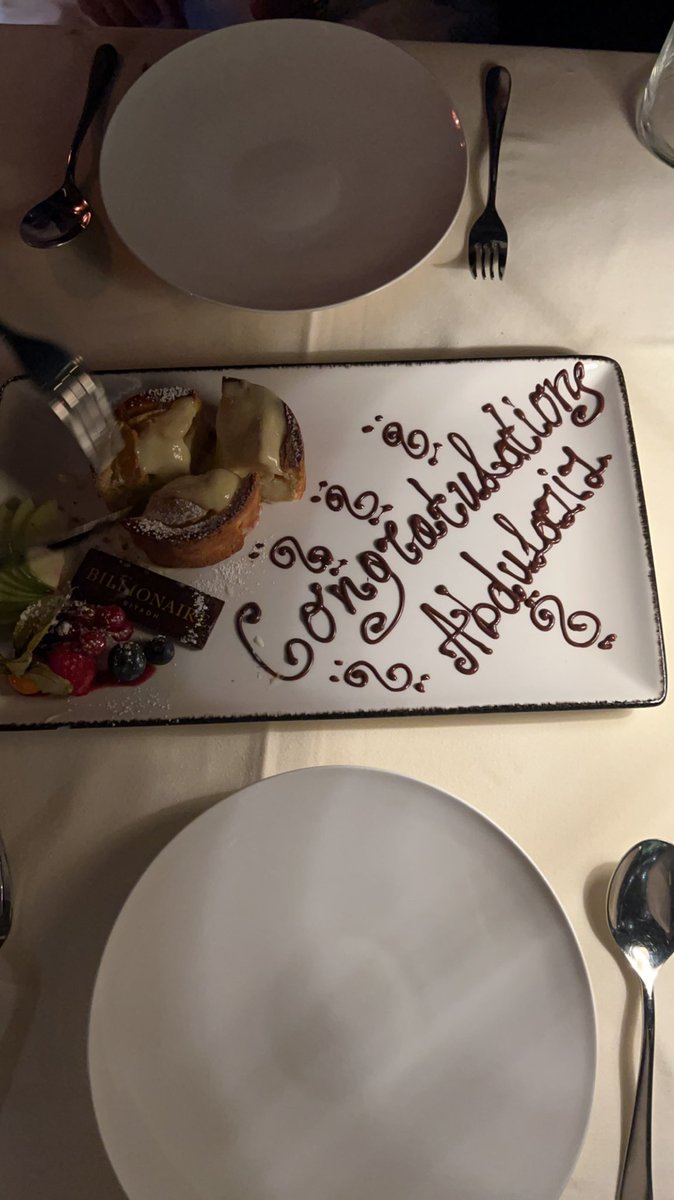 Congratulations
Abdulaziz
BILLIONAIRE
RIYADH